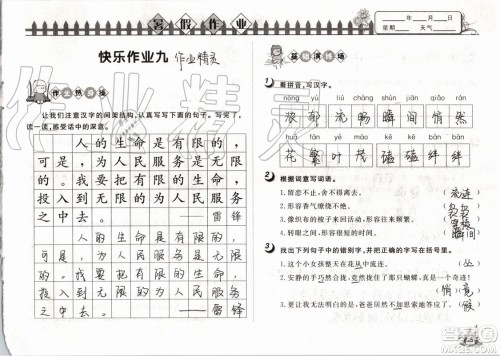 暑假作业
快乐作业九 作业精灵
作业热身操
让我们注意汉字的间架结构,认真写写下面的句子。写完了,
读一读,感受话中的深意。
人的生命是有限的,
可是,为人民服务是无限
的,我要把有限的生命,
投入到无限的为人民服务
之中去。
——雷锋
人的生命是有限的,
可是,为人民服务是无限
的,我要把有限的生命,
投入到无限的为人民服务
之中去。
——雷锋
____年____月____日
星期____ 天气____
基础演练场
1 看拼音,写汉字。
流畅 瞬间 悄然
花繁叶茂 磕磕绊绊
2 根据词意写词语。
1. 留恋不止,舍不得离去。 (流连)
2. 形容香气缭绕不绝。 (袅袅)
3. 像织布的梭子来回活动,形容来往频繁。 (穿梭)
4. 转眼之间,形容很短的时间。 (瞬间)
3 找出下列句子中的错别字,并把正确的字写在括号里。
1. 这个小女孩整天在花从中流连。 (丛)
2. 安静的手巧然伸出,竟然能抓住那只蝴蝶,真是一个奇迹!
(悄)
3. 更让我无法明白的是,爸爸居然不加思索地答应了。